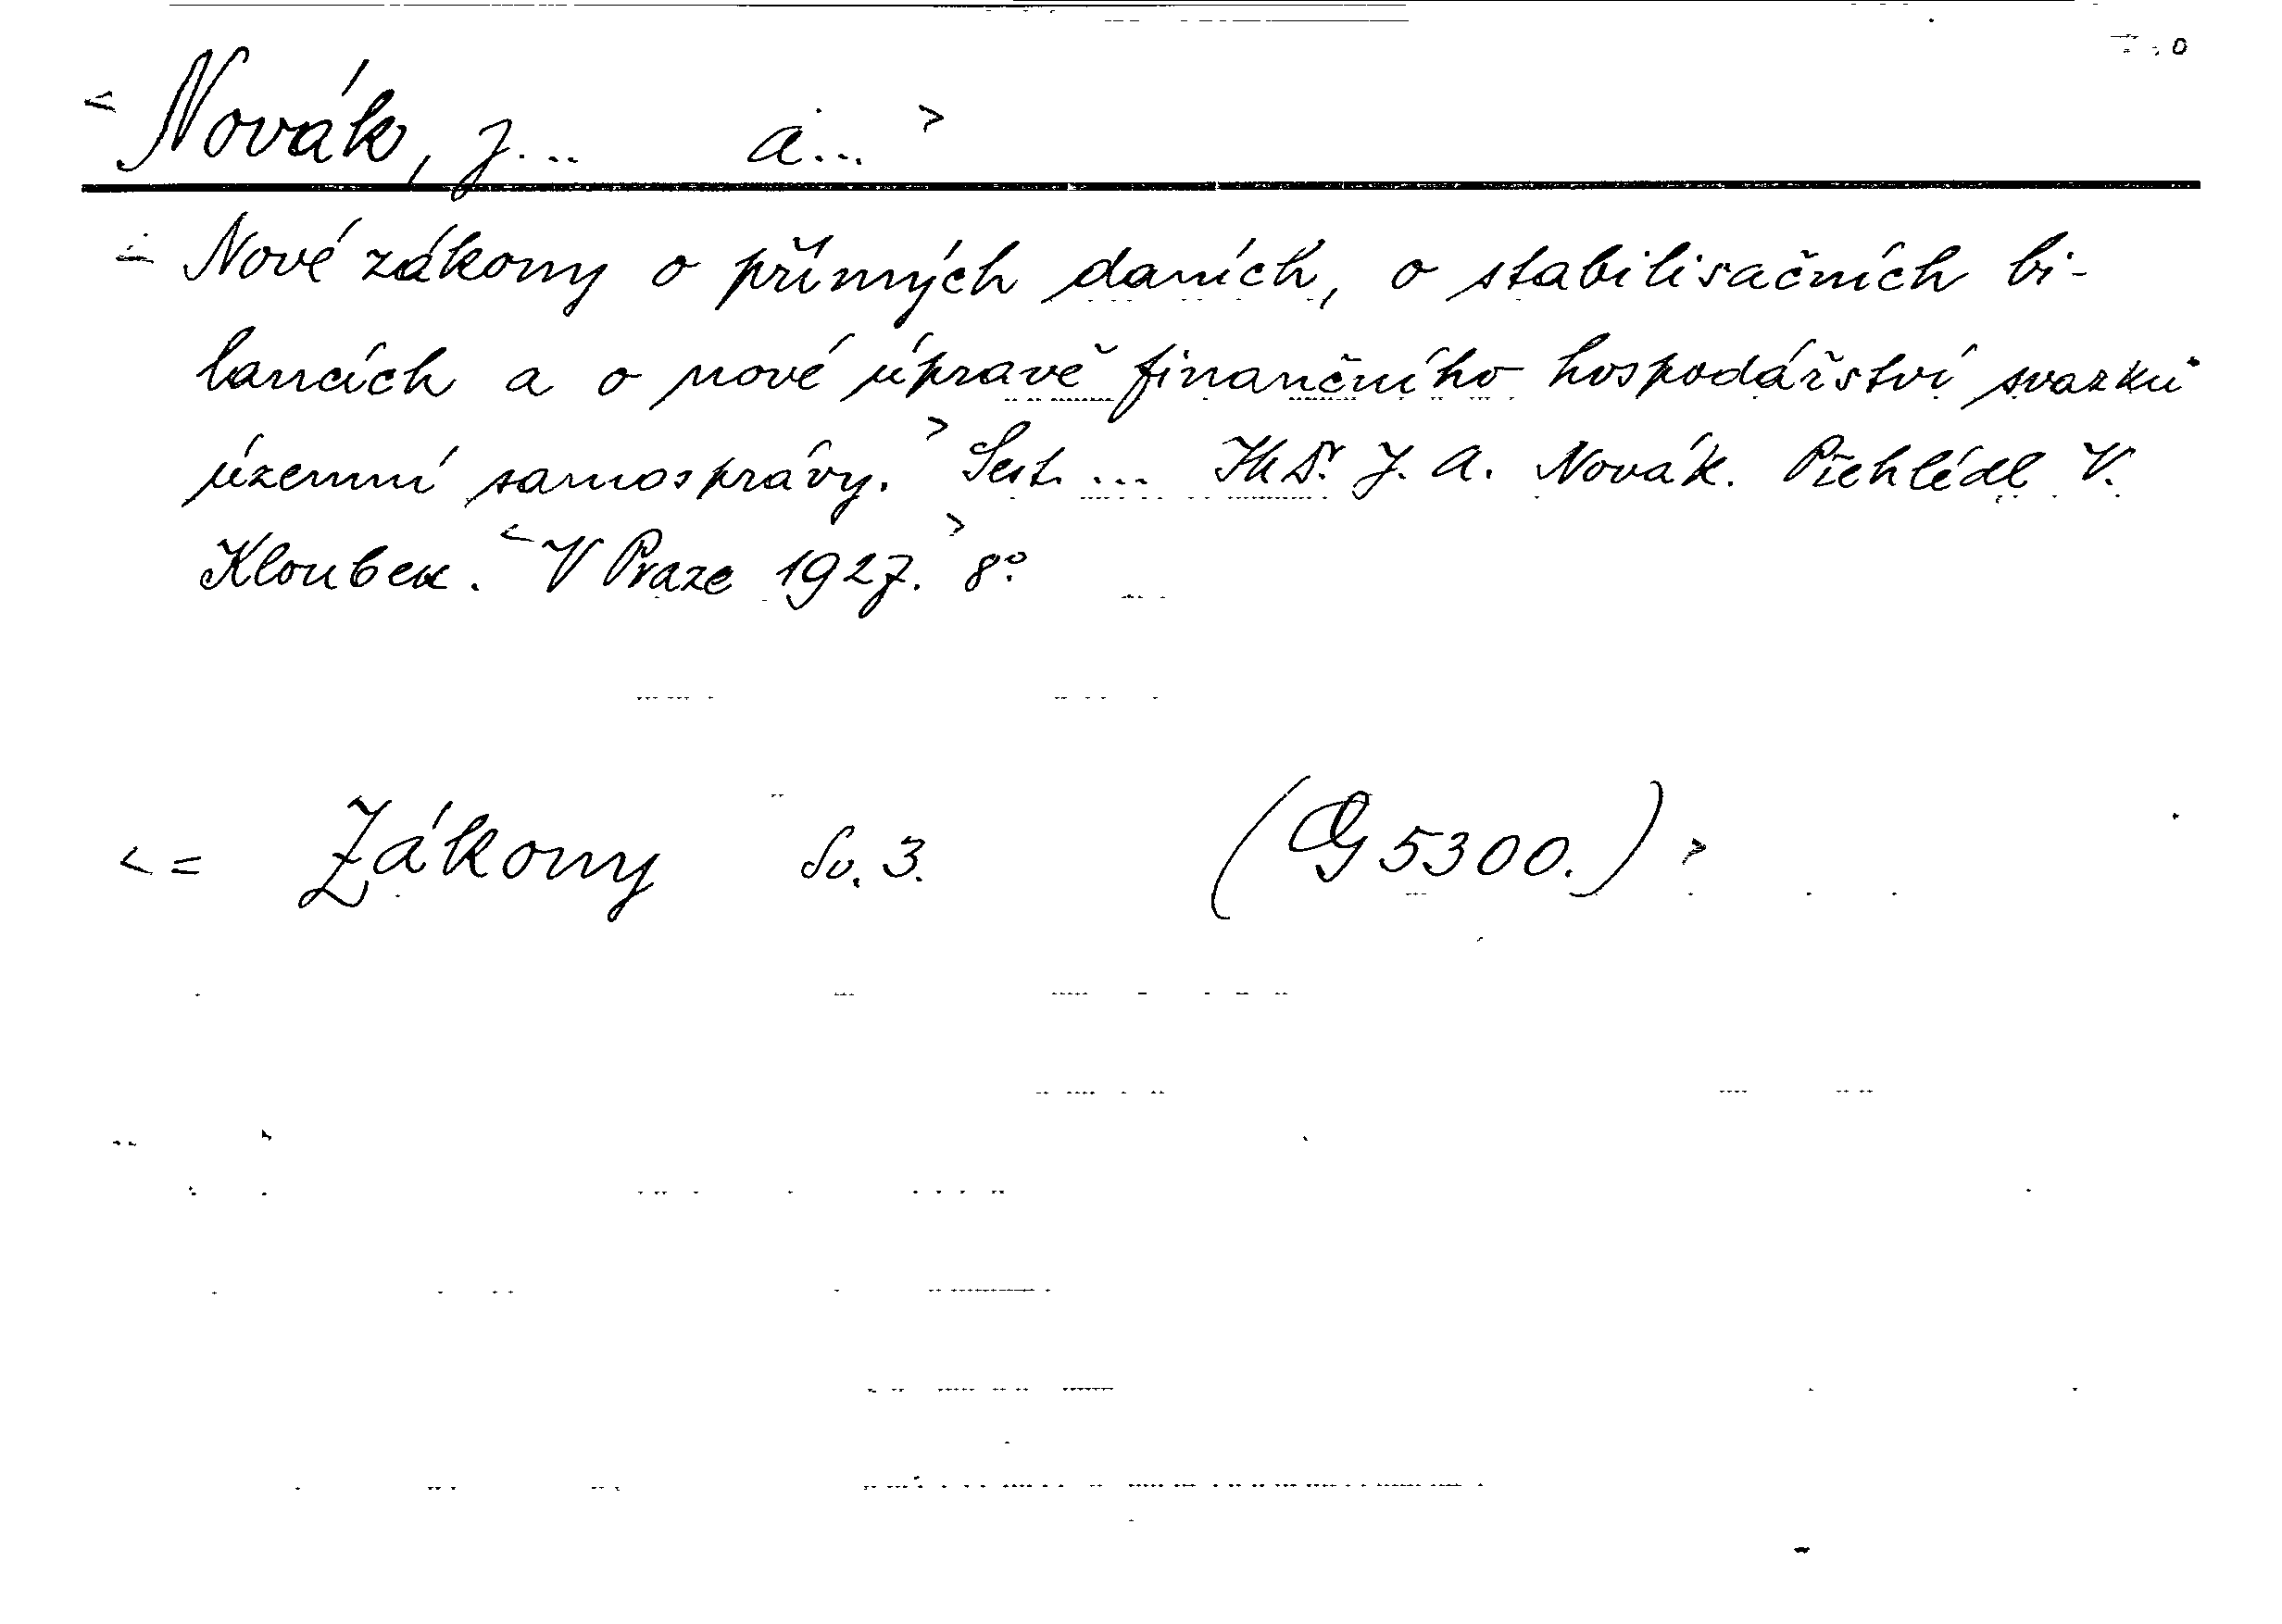 < Novák, J... A... >
= Nové zákony o přímých daních, o stabilisačních bi-
lancích a o nové úpravě finančního hospodářství svazků
územní samosprávy. > Sest. ... JUDr. J. A. Novák. Přehlédl V.
Kloubek. < V Praze 1927. > 8°.
< = Zákony Sv. 3. (Og 5300.) >